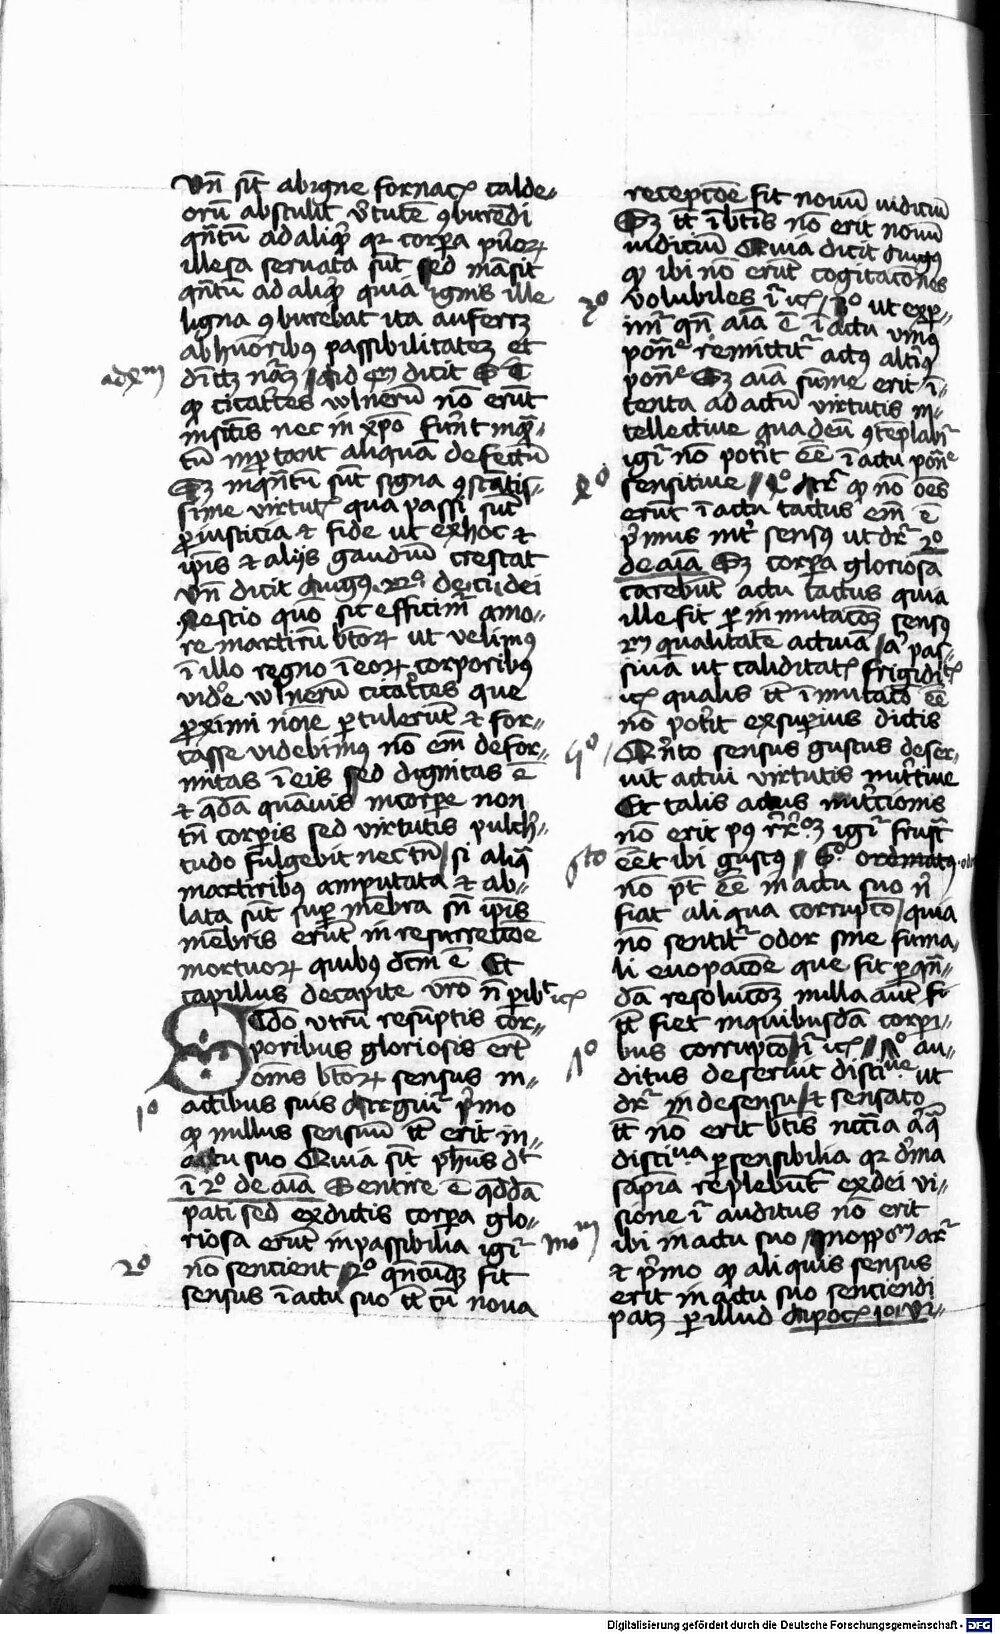 Vn̄ sic̄ ab igne fornac calde-
orū abstulit v̓tutē ꝯburēdi
qn̄tū ad aliqd̓ qꝛ corpa pu̓oꝝ
illesa servata sūt sed māsit
qn̄tū ad aliqd̓ quia ignis ille
ligna ꝯburebat ita auferꝫ
ab huōribꝰ passibilitatē et
ad xm
qꝫ cicat̓ces vulnerū nō erūt
in sc̄tis nec in xp̄o fuer̄t inqꝫ-
tū īportant aliquā defectū
Sꝫ inqn̄tū sūt signa ꝯstātis-
sime virtut qua passi sūt
ꝓ iusticia ⁊ fide ut ex hoc ⁊
ip̄is ⁊ alijs gaudiū crescat
vn̄ dicit Augꝰ 22º de ci dei
Nescio quō sic afficim̄ amo-
re martirū bt̄oꝝ ut velimꝰ
ī illo regno ī eoꝝ corporibꝰ
vide̓ vulnerū cicat̓ces que
ꝓ xp̄i noīe ꝑtulerūt ⁊ for-
tasse videbimꝰ nō em̄ defor-
mitas ī eis sed dignitas ē
⁊ q̄dā quāvis in corpe non
tn̄ corpis sed virtutis pulch̓-
tudo fulgebit nec tn̄ si aliq̄
martiribꝰ amputata ⁊ ab-
lata sūt mēbra sn̄ ip̄is
mēbris erūt in resurrectōe
mortuoꝝ quibꝰ dcm̄ ē Et
capillus de capite vr̄o n̄ pibt ic
Scdo utrū resūptis cor-
poribus gloriosis erūt
oīms bt̄oꝝ sensus in
actibus suis Et arguit̓ p̓mo
1º
qꝫ nullus sensuū tt̄ erit in
actu suo Quia sic̄ ph̄us dt
ī 2º de aīa Sentire ē qd̄dā
pati sed ex dictis corpa glo-
riosa erūt inpassibilia igit̓
nō sencient 2º qn̄cūqꝫ fit
2º
sensus ī actu suo tt̄ tū nova
receptōe fit novū iudiciū
Sꝫ tt̄ ī bt̄is nō erit novū
iudiciū Quia dicit Augꝰ
qꝫ ibi nō erūt cogitacōnes
volubiles ī ic 3º ut expi-
3º
im̄ qn̄ aīa ē ī actu uniꝰ
pon̄e remittit̓ actꝰ alt̓iꝰ
pon̄e Sꝫ aīa sūme erit ī-
tenta ad actū virtutis in-
tellective qua deū ꝯteplabit̓
igit̓ nō potit eē ī actu pon̄e
sensitive 4º
4º
erūt ī actu tactus em̄ ē
p̓mus int̓ sensꝰ ut dr̄ 2º
de aīa Sꝫ corpa gloriosa
carebūt actu tactus quia
ille fit ꝑ inmutacōꝫ sensꝰ
qualitatē activā a̓ pas-
sivā ut caliditat frigidit
ic qualis tt̄ īmutatō eē
nō potit ex supius dictis
Qn̓to sensus gustus deser-
5º
vit actui virtutis nut̓tive
Et talis actus nut̓cionis
nō erit pꝰ igit̓ frust̓
eēt ibi gustꝰ 6º odoratꝰ
6to
nō pt̄ eē in actu suo n̓
fiat aliqua corruptō quia
nō sentit̓ odor sine fuma-
li evopacōe que fit ꝑ qn̄-
dā resolucōꝫ nulla aūt fi
tt̄ fiet in quibusdā corpi-
bus corruptō ī ic 7º au-
7º
ditus deservit discive ut
dr̄ in de sensu ⁊ sensato
tt̄ nō erit bt̄is nccīa aq̄
disciva ꝑ sensibilia qꝛ dīna
sapīa replebūt̓ ex dei vi-
sione ī auditus nō erit
ibi in actu suo In opposm ar̓
⁊ p̓mo qꝫ aliquis sensus
erit in actu suo senciendi
patꝫ ꝑ illud Apoc 1º Vi-
Digitalisierung gefördert durch die Deutsche Forschungsgemeinschaft - DFG